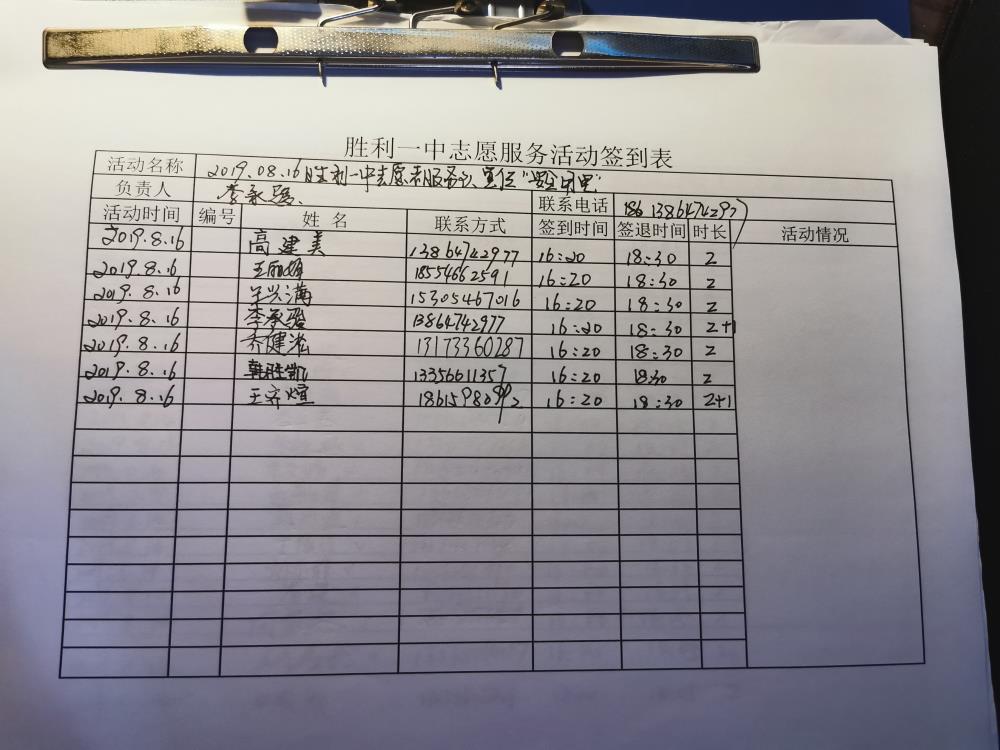 胜利一中志愿服务活动签到表
活动名称 2019.08.16胜利一中志愿者服务队
负责人 李承骏 联系电话 13864742977
活动时间 编号 姓名 联系方式 签到时间 签退时间 时长 活动情况
2019.8.16 高建美 13864742977 16:20 18:30 2
2019.8.16 18554662591 16:20 18:30 2
2019.8.16 15305467016 16:20 18:30 2
2019.8.16 李承骏 13864742977 16:20 18:30 2+1
2019.8.16 13173360287 16:20 18:30 2
2019.8.16 韩胜凯 13356011357 16:20 18:30 2
2019.8.16 王齐煊 16:20 18:30 2+1